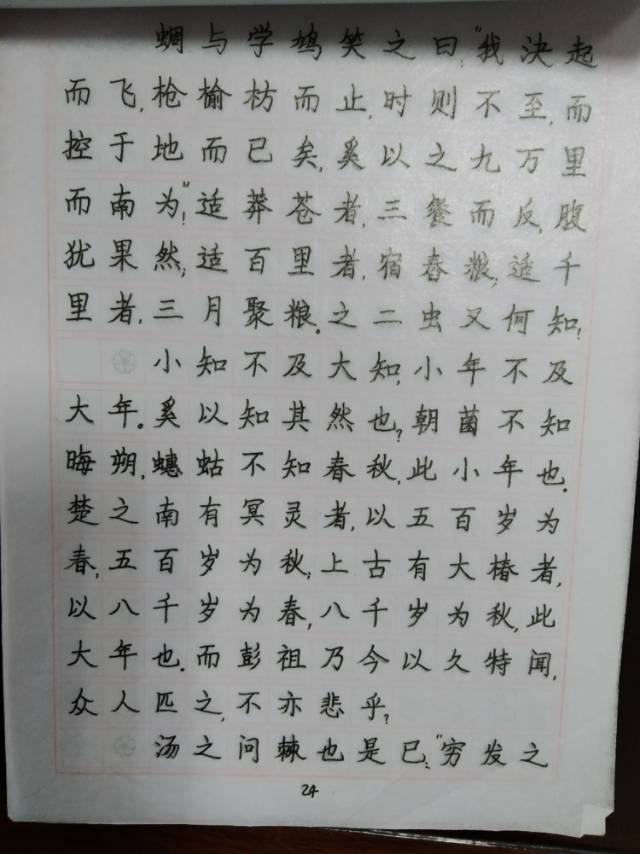 蜩与学鸠笑之曰:"我决起
而飞,枪榆枋而止,时则不至,而
控于地而已矣,奚以之九万里
而南为?"适莽苍者,三餐而反,腹
犹果然;适百里者,宿舂粮;适千
里者,三月聚粮。之二虫又何知?
小知不及大知,小年不及
大年。奚以知其然也?朝菌不知
晦朔,蟪蛄不知春秋,此小年也。
楚之南有冥灵者,以五百岁为
春,五百岁为秋;上古有大椿者,
以八千岁为春,八千岁为秋,此
大年也。而彭祖乃今以久特闻,
众人匹之,不亦悲乎?
汤之问棘也是已:"穷发之
24